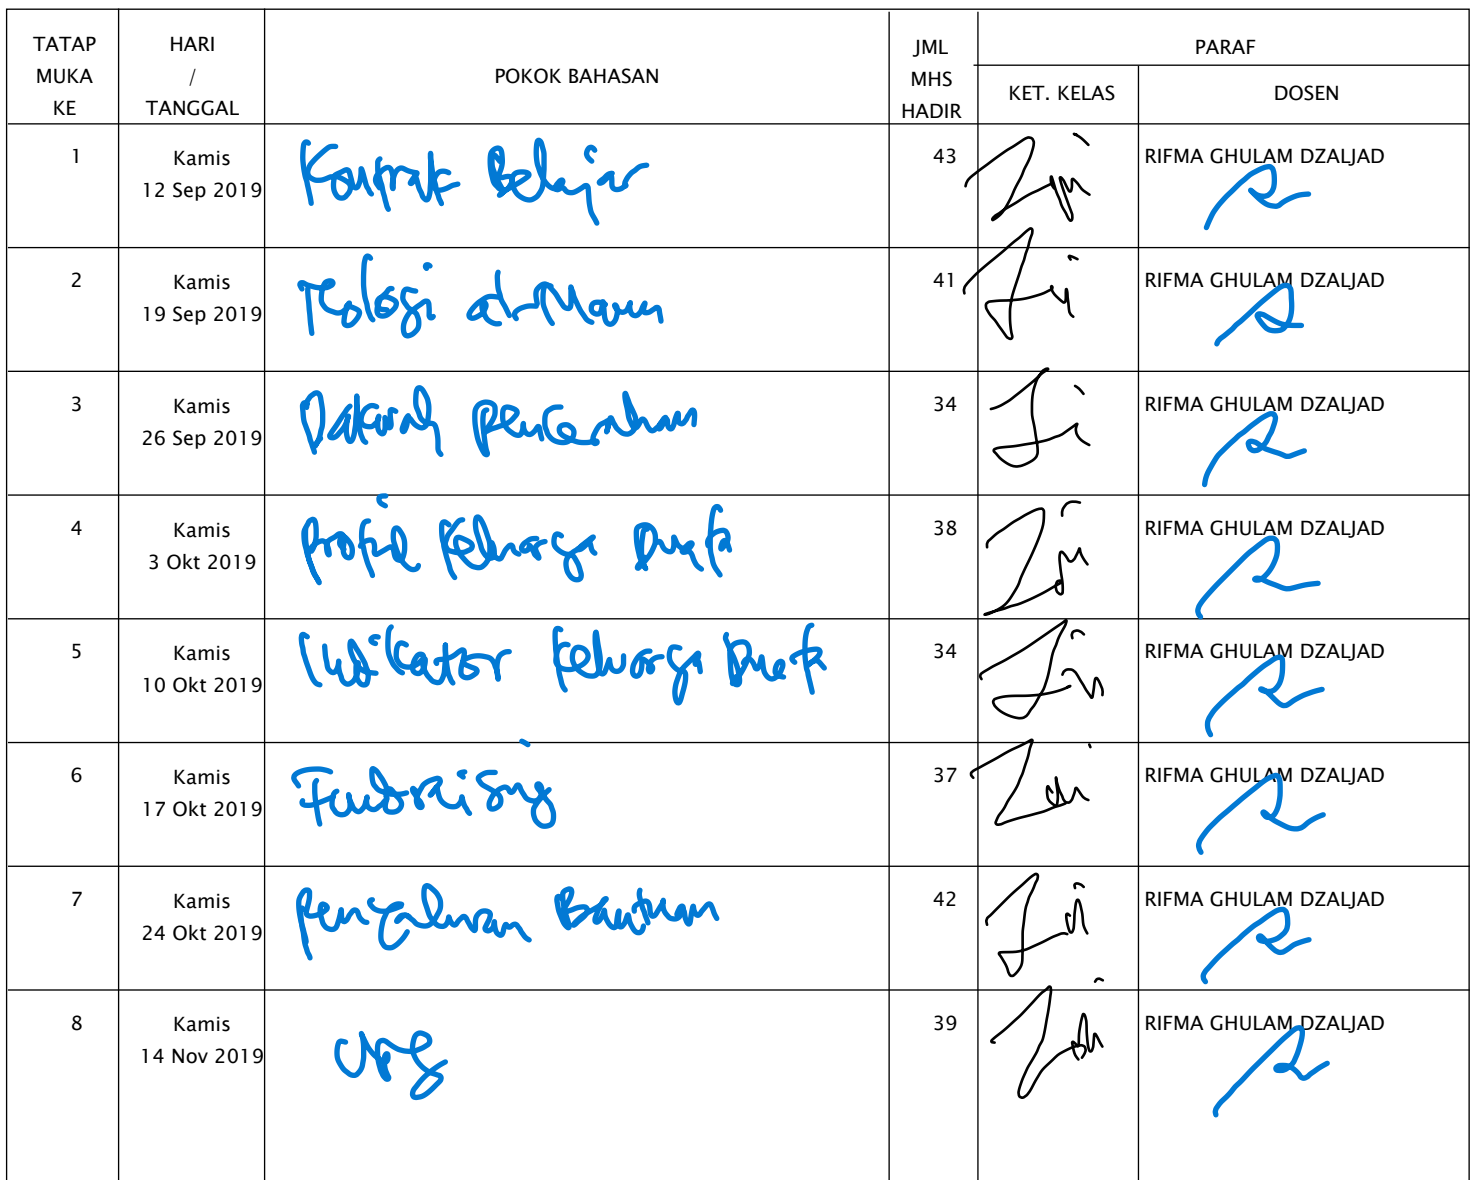 TATAP MUKA KE
HARI / TANGGAL
POKOK BAHASAN
JML MHS HADIR
PARAF
KET. KELAS
DOSEN
1
Kamis
12 Sep 2019
Kontrak Belajar
43
RIFMA GHULAM DZALJAD
2
Kamis
19 Sep 2019
Teologi al-Maun
41
RIFMA GHULAM DZALJAD
3
Kamis
26 Sep 2019
Dakwah Pencerahan
34
RIFMA GHULAM DZALJAD
4
Kamis
3 Okt 2019
Profil Keluarga Duafa
38
RIFMA GHULAM DZALJAD
5
Kamis
10 Okt 2019
Indikator Keluarga Duafa
34
RIFMA GHULAM DZALJAD
6
Kamis
17 Okt 2019
Fundraising
37
RIFMA GHULAM DZALJAD
7
Kamis
24 Okt 2019
Penyaluran Bantuan
42
RIFMA GHULAM DZALJAD
8
Kamis
14 Nov 2019
39
RIFMA GHULAM DZALJAD